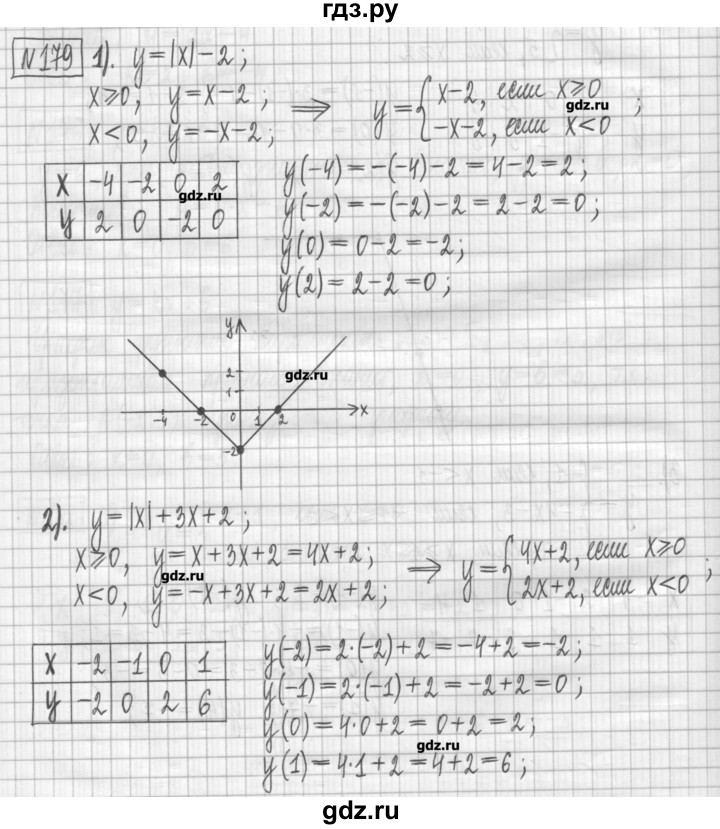 гдз.ру
№179 1). y=|x|-2;
x⩾0, y=x-2; ⟹ y={x-2, если x⩾0
gdz.ru
x<0, y=-x-2; {-x-2, если x<0;
x -4 -2 0 2
gdz.ru
y 2 0 -2 0
y(-4)=-(-4)-2=4-2=2;
y(-2)=-(-2)-2=2-2=0;
y(0)=0-2=-2;
y(2)=2-2=0;
y
2
gdz.ru
1
-4 -2 0 1 2 x
-2
2). y=|x|+3x+2;
x⩾0, y=x+3x+2=4x+2; ⟹ y={4x+2, если x⩾0
gdz.ru
x<0, y=-x+3x+2=2x+2; {2x+2, если x<0;
x -2 -1 0 1
y -2 0 2 6
y(-2)=2·(-2)+2=-4+2=-2;
y(-1)=2·(-1)+2=-2+2=0;
y(0)=4·0+2=0+2=2;
gdz.ru
y(1)=4·1+2=4+2=6;
gdz.ru